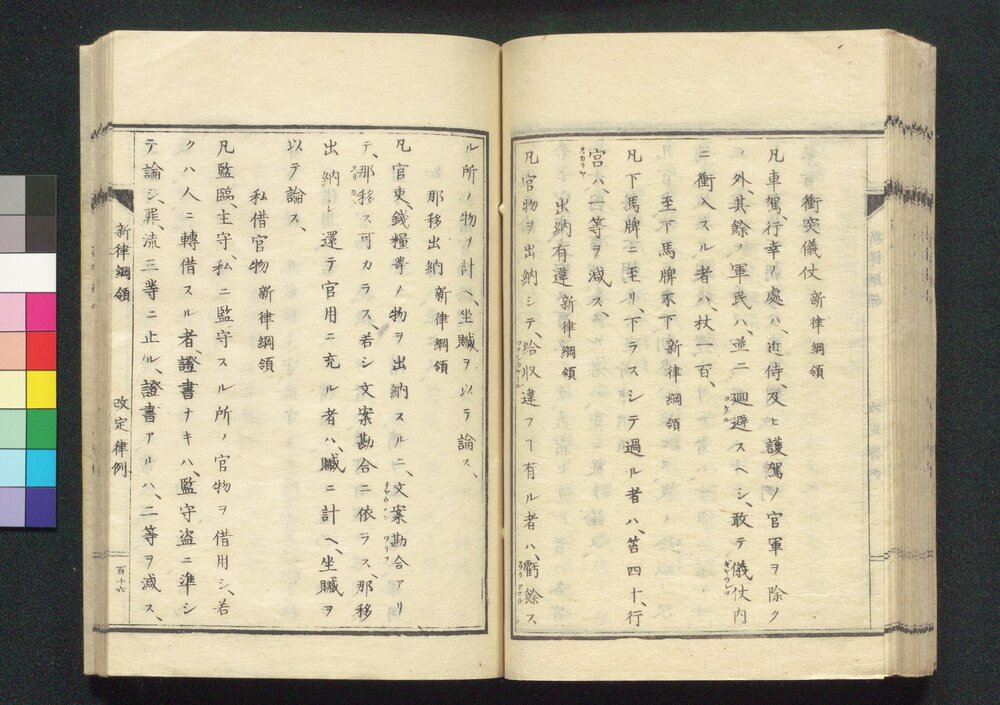 衝突儀仗 新律綱領
凡車駕、行幸ノ處ハ、近侍、及ヒ護駕ノ官軍ヲ除ク
ノ外、其餘ノ軍民ハ、並ニ廻避スヘシ、敢テ儀仗内
ニ衝入スル者ハ、杖一百、
至下馬牌不下 新律綱領
凡下馬牌ニ至リ、下ラスシテ過ル者ハ、笞四十、行
宮ハ、一等ヲ減ス、
出納有違 新律綱領
凡官物ヲ出納シテ、給収違フヿ有ル者ハ、虧餘ス
ル所ノ物ヲ計ヘ、坐贓ヲ以テ論ス、
那移出納 新律綱領
凡官吏、錢糧等ノ物ヲ出納スルニ、文案勘合アリ
テ、那移ス可カラス、若シ文案勘合ニ依ラス、那移
出納シ還テ官用ニ充ル者ハ、贓ニ計ヘ、坐贓ヲ
以テ論ス、
私借官物 新律綱領
凡監臨主守、私ニ監守スル所ノ官物ヲ借用シ、若
クハ人ニ轉借スル者、證書ナキハ、監守盗ニ準シ
テ論シ、罪、流三等ニ止ル、證書アルハ、二等ヲ減ス、
新律綱領 改定律例
百十六